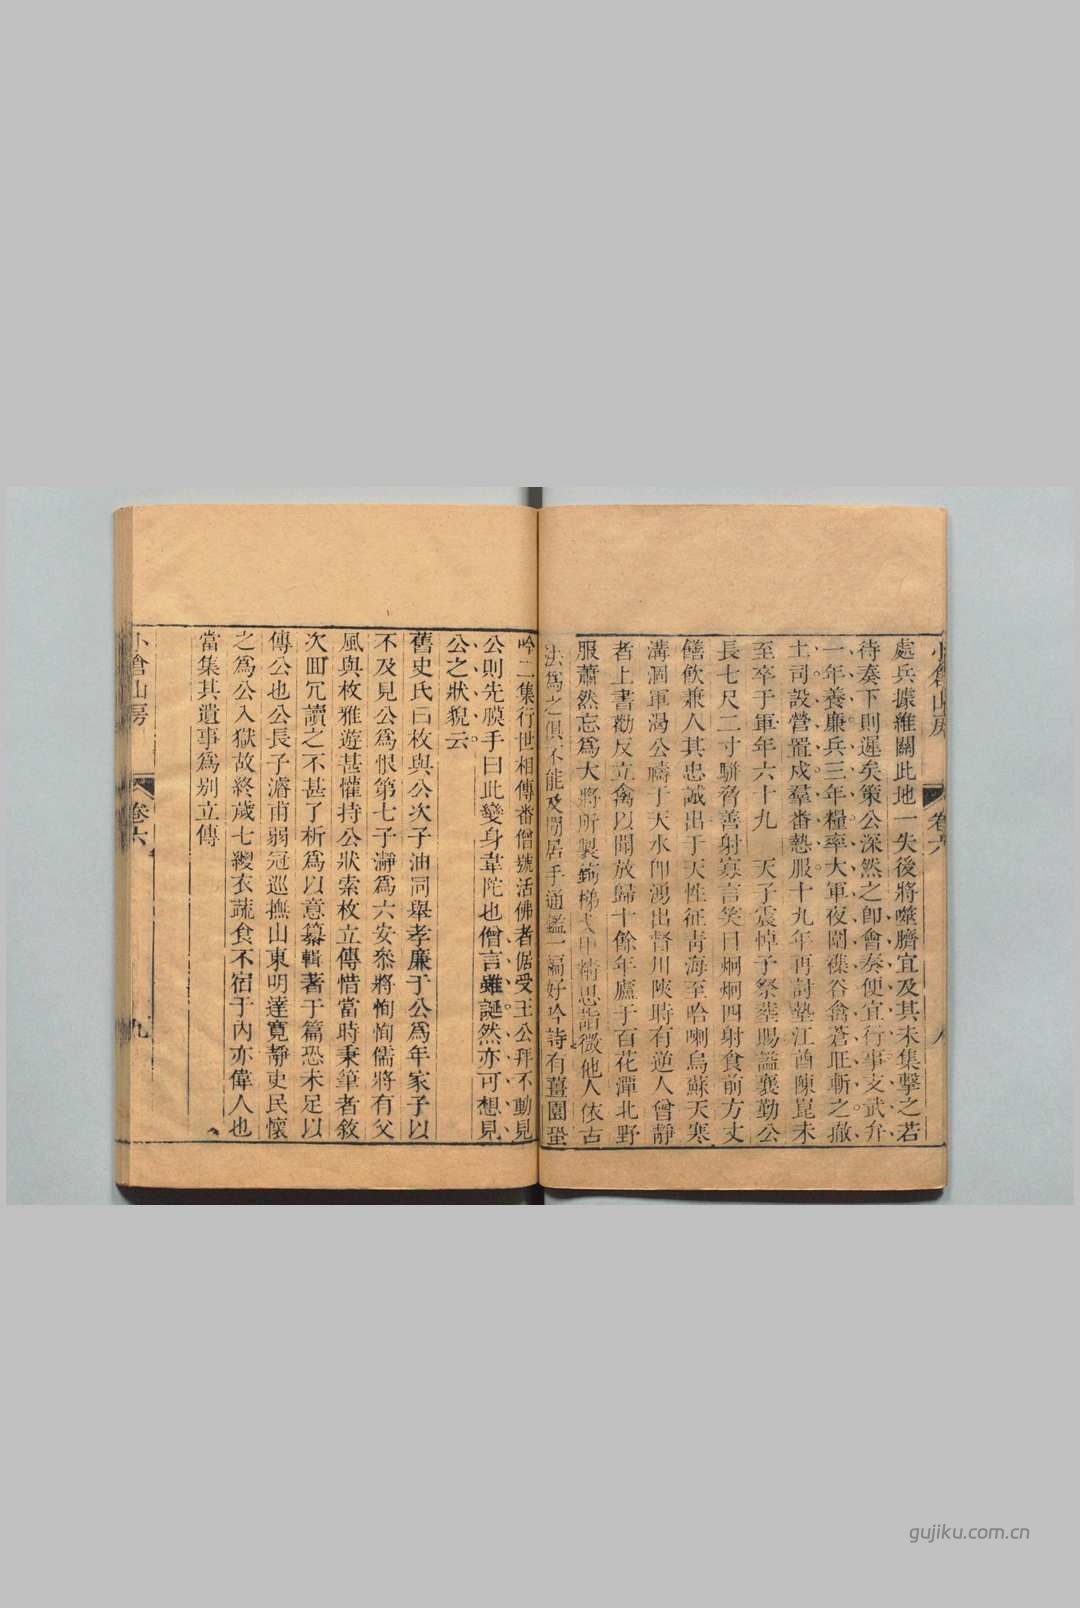 小倉山房
卷六
八
處兵據雜關此地一失後將噬臍宜及其未集擊之若
待奏下則遲矣策公深然之卽會奏便宜行事支武弁
一年養廉兵三年糧率大軍夜圍穇谷禽蒼旺斬之撤
土司設營置戍羣番慹服十九年再討墊江酋陳崑未
至卒于軍年六十九 天子震悼予祭葬賜謚襄勤公
長七尺二寸駢脅善射寡言笑目炯炯四射食前方丈
饍飲兼人其忠誠出于天性征青海至哈喇烏蘇天寒
溝涸軍渴公禱于天水卽湧出督川陝時有逆人曾靜
者上書勸反立禽以聞放歸十餘年廬于百花潭北野
服蕭然忘爲大將所製鎗梯弋甲精思詣微他人依古
法爲之俱不能及閒居手通鑑一編好吟詩有薑園蛩
吟二集行世相傳番僧號活佛者倨受王公拜不動見
公則先膜手曰此變身韋陀也僧言雖誕然亦可想見
公之狀貌云
舊史氏曰枚與公次子油同舉孝廉于公爲年家子以
不及見公爲恨第七子瀞爲六安叅將恂恂儒將有父
風與枚雅遊甚懽持公狀索枚立傳惜當時秉筆者敘
次冗讀之不甚了析爲以意纂輯著于篇恐未足以
傳公也公長子濬甫弱冠巡撫山東明達寬靜吏民懷
之爲公入獄故終歲七緵衣蔬食不宿于內亦偉人也
當集其遺事爲別立傳
小倉山房
卷六
九
gujiku.com.cn